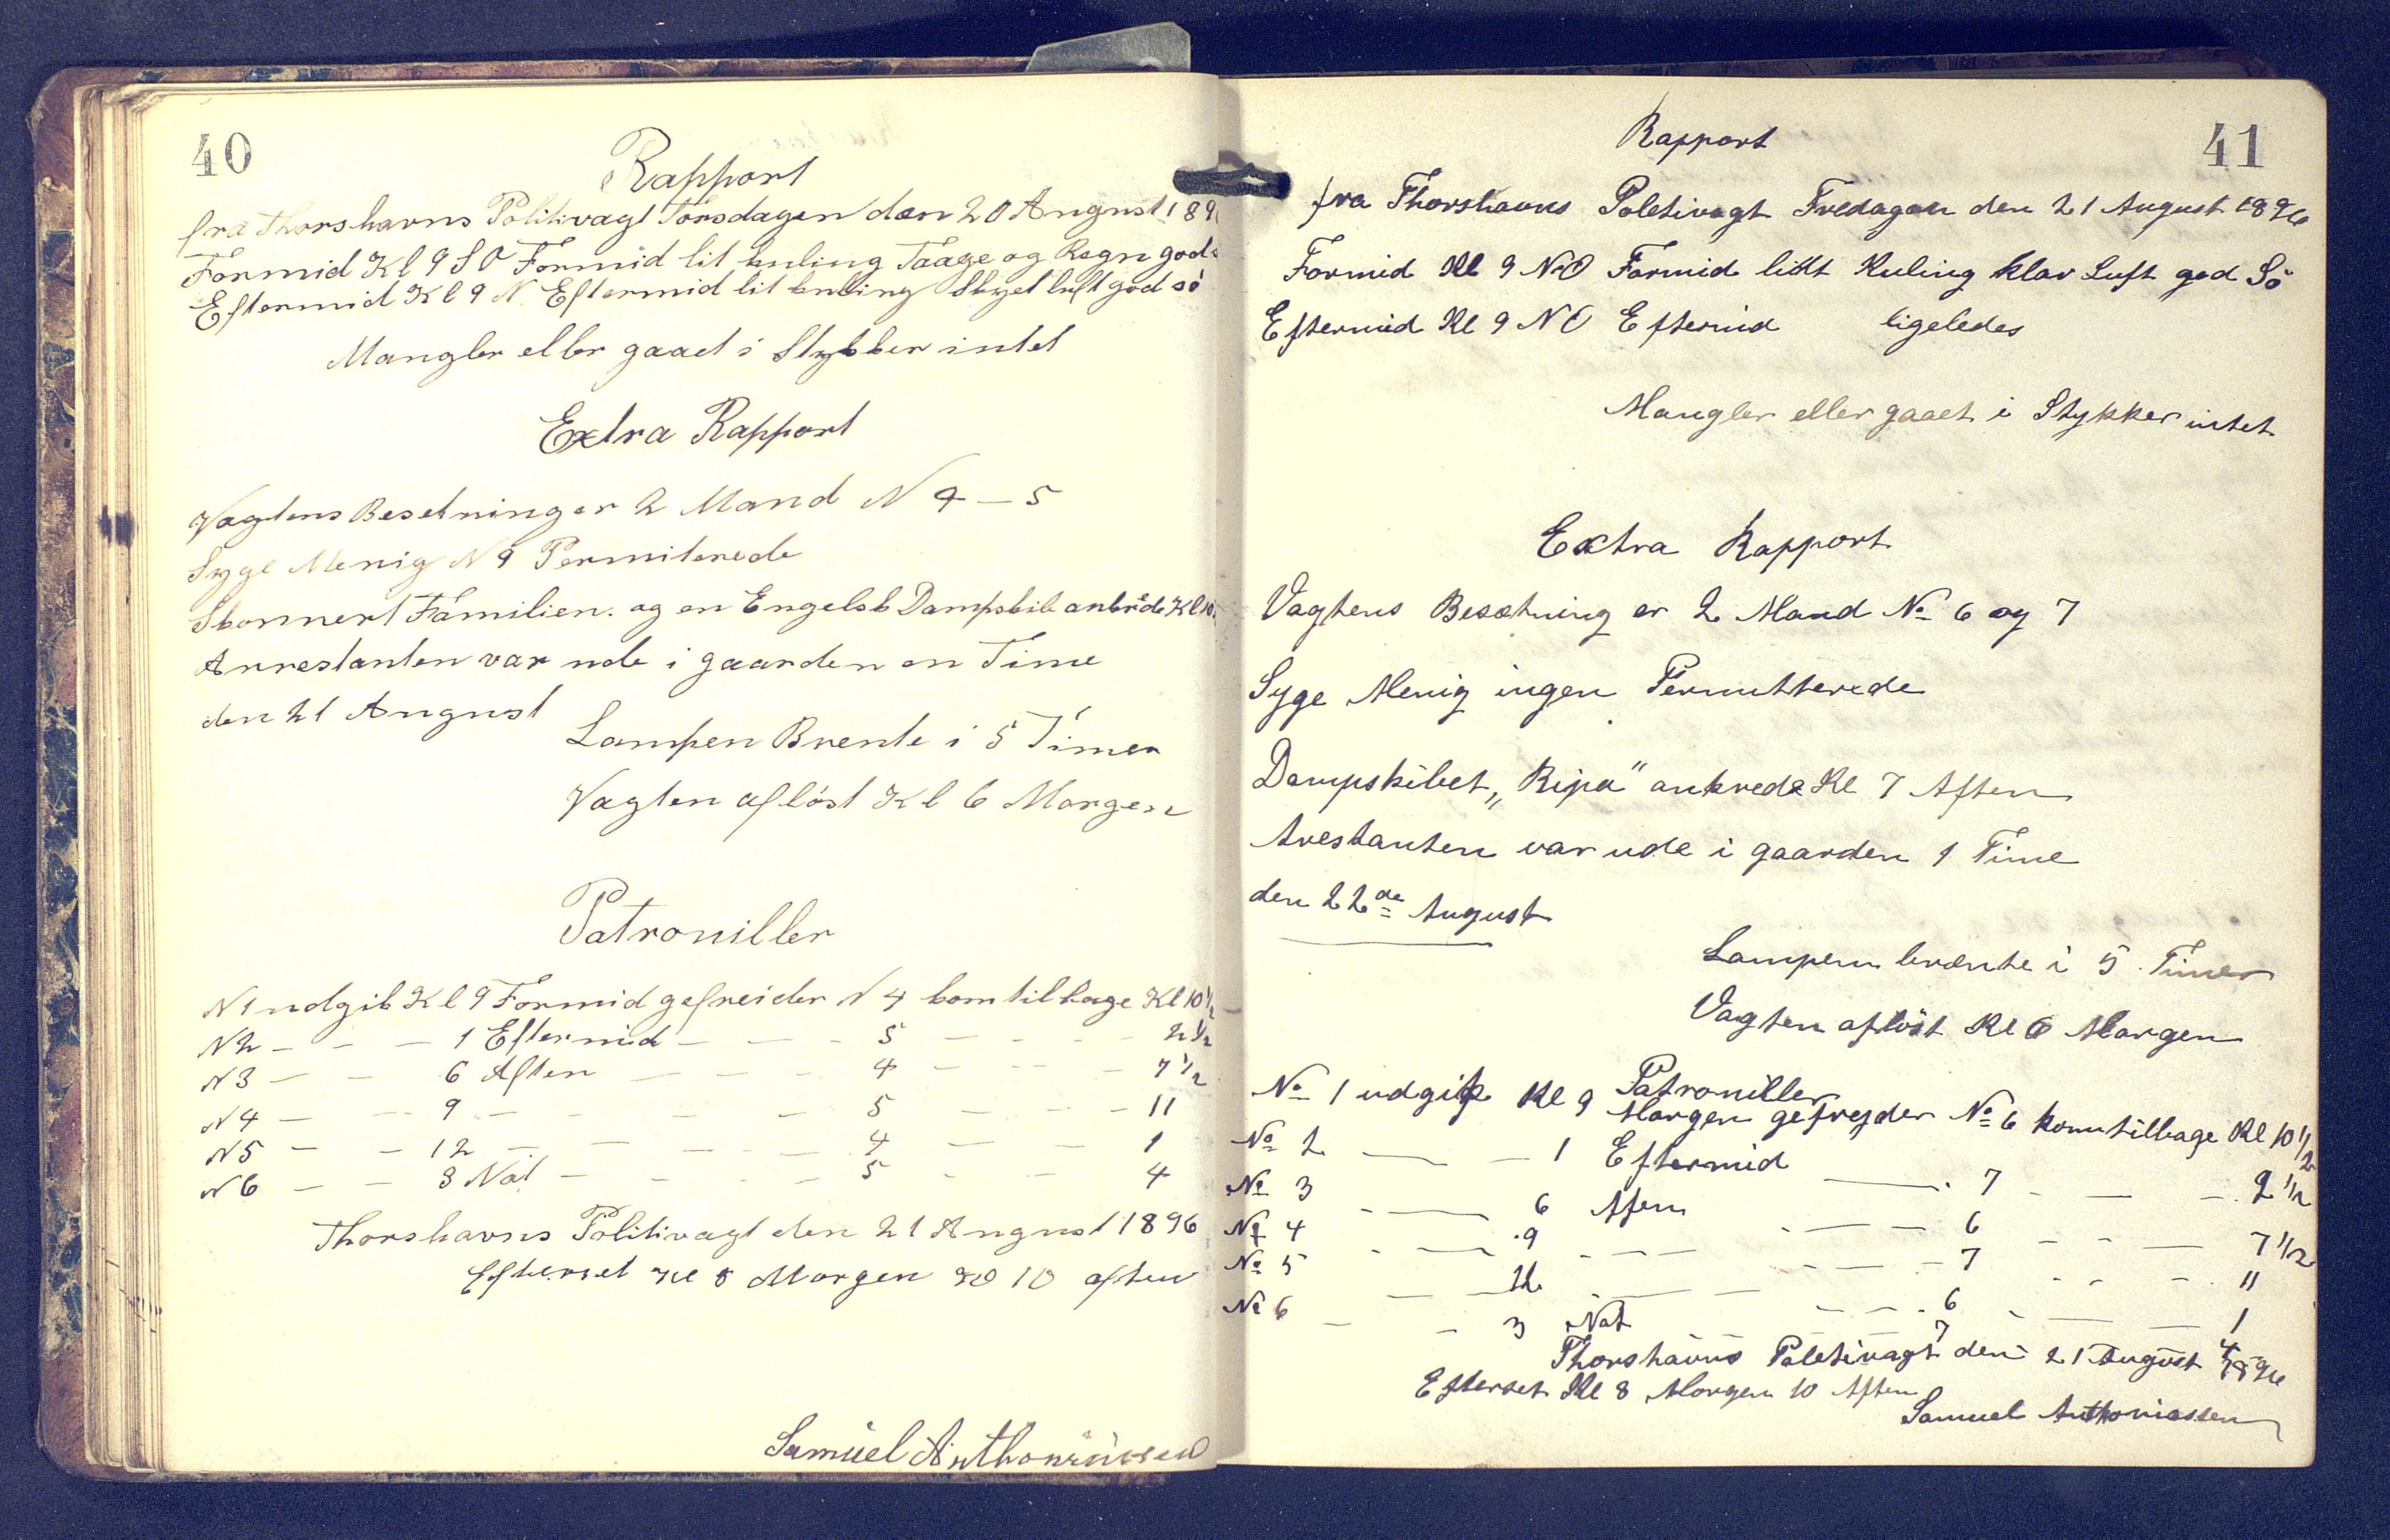 40
Rapport
fra Thorshavns Politivagt Torsdagen den 20 August 189
Formid Kl 9 S O Formid lit kuling Taage og Regn god
Eftermid Kl 9 N. Eftermid lit kuling Skyet luft god sö
Mangler eller gaaet i Stykker intet
Extra Rapport
Vagtens Besetning er 2 Mand N 4 — 5
Syge Menig N 9 Permiterede
Skonnert Familien. og en Engelsk Dampskib ankrede Kl 10
Arrestanten var ude i gaarden en Time
den 21 August
Lampen Brente i 5 Timer
Vagten aflöst Kl 6 Morgen
Patrouiller
N 1 udgik Kl 9 Formid gefreider N 4 kom tilbage Kl 10 1/2
N 2 — — — 1 Eftermid — — — 5 — — — — 2 1/2
N 3 — — 6 Aften — — — 4 — — — — 7 1/2
N 4 — — 9 — — — — 5 — — — 11
N 5 — — 12 — — — — 4 — — — 1
N 6 — — 3 Nat — — — 5 — — — 4
Thorshavns Politivagt den 21 August 1896
Efterset Kl 8 Morgen Kl 10 aften
Samuel Anthoniusen
41
Rapport
fra Thorshavns Poletivagt Fredagen den 21 August 1896
Formid Kl 9 NO Formid lidt Kuling klar Luft god Sö
Eftermid Kl 9 NO Eftermid ligeledes
Mangler eller gaaet i Stykker intet
Extra Rapport
Vagtens Besætning er 2 Mand No 6 og 7
Syge Menig ingen Permitterede
Dampskibet „Ripa" ankrede Kl 7 Aften
Arestanten var ude i gaarden 1 Time
den 22de August
Lampen brænte i 5 Timer
Vagten aflöst Kl 6 Morgen
Patrouiller
No 1 udgik Kl 9 Morgen gefrejder No 6 kom tilbage Kl 10 1/2
No 2 — — 1 Eftermid — 7 — — — 2 1/2
No 3 — — 6 Aften — — — 6 — — — 7 1/2
No 4 — — 9 — — — — 7 — — — 11
No 5 — — 12 — — — — 6 — — — 1
No 6 — — 3 Nat — — — 7 — — — 4
Thorshavns Poletivagt den 21 August 1896
Efterset Kl 8 Morgen 10 Aften
Samuel Anthoniassen